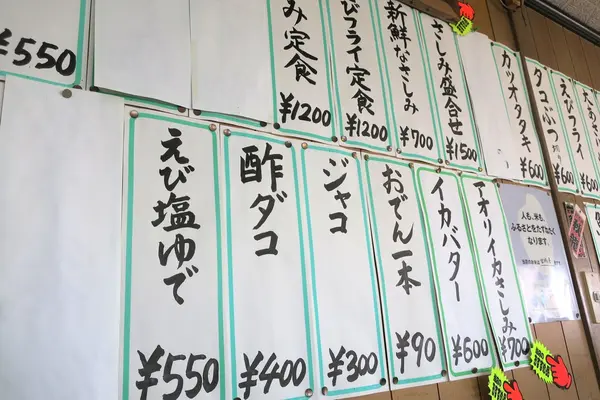 ¥550
み定食
¥1200
びフライ定食
¥1200
新鮮なさしみ
¥700
さしみ盛合せ
¥1500
カツオタタキ
¥600
タコぶつ
¥600
えびフライ
¥600
¥600
えび塩ゆで
¥550
酢ダコ
¥400
ジャコ
¥300
おでん一本
¥90
イカバター
¥600
アオリイカさしみ
¥700
人も、米も、
ふるさとをたすなたく
なります。